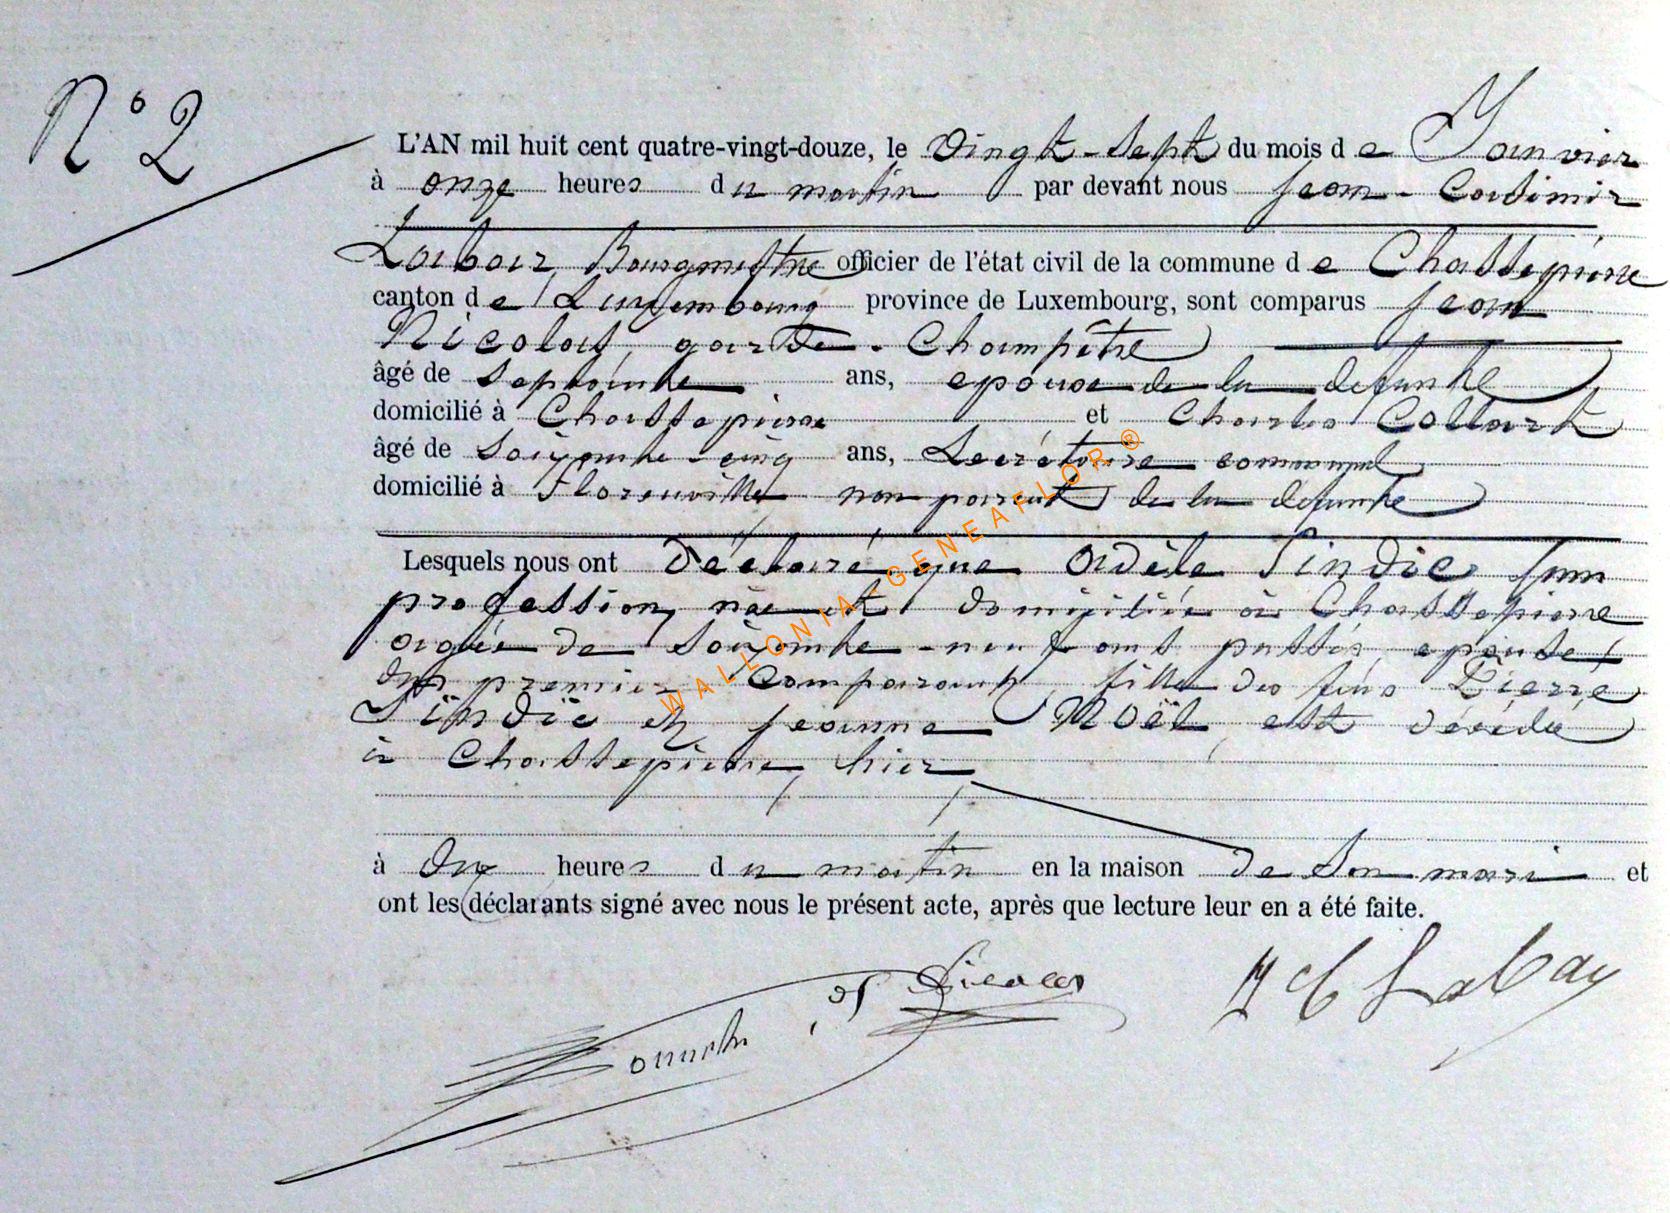 N° 2
L'AN mil huit cent quatre-vingt-douze, le Vingt-sept du mois de Janvier
à onze heures du matin par devant nous Jean-Casimir
Labair, Bourgmestre officier de l'état civil de la commune de Chassepierre
canton de Luxembourg province de Luxembourg, sont comparus Jean
Nicolas, garde-Champêtre
âgé de Septante ans, epoux de la defunte
domicilié à Chassepierre et Charles Collart
âgé de Soixante-cinq ans, Secrétaire communal
domicilié à Florenville non parent de la defunte
Lesquels nous ont Déclaré que Adèle Sindic sans
profession, née et domiciliée à Chassepierre
agée de Soixante-neuf ans passés, epouse
du premier Comparant, fille des feus Pierre
Sindic et Jeanne Noël, est décédée
à Chassepierre, hier
à dix heures du matin en la maison de son mari et
ont les déclarants signé avec nous le présent acte, après que lecture leur en a été faite.
J C Labay
WALLONIA-GENEAFLOR®